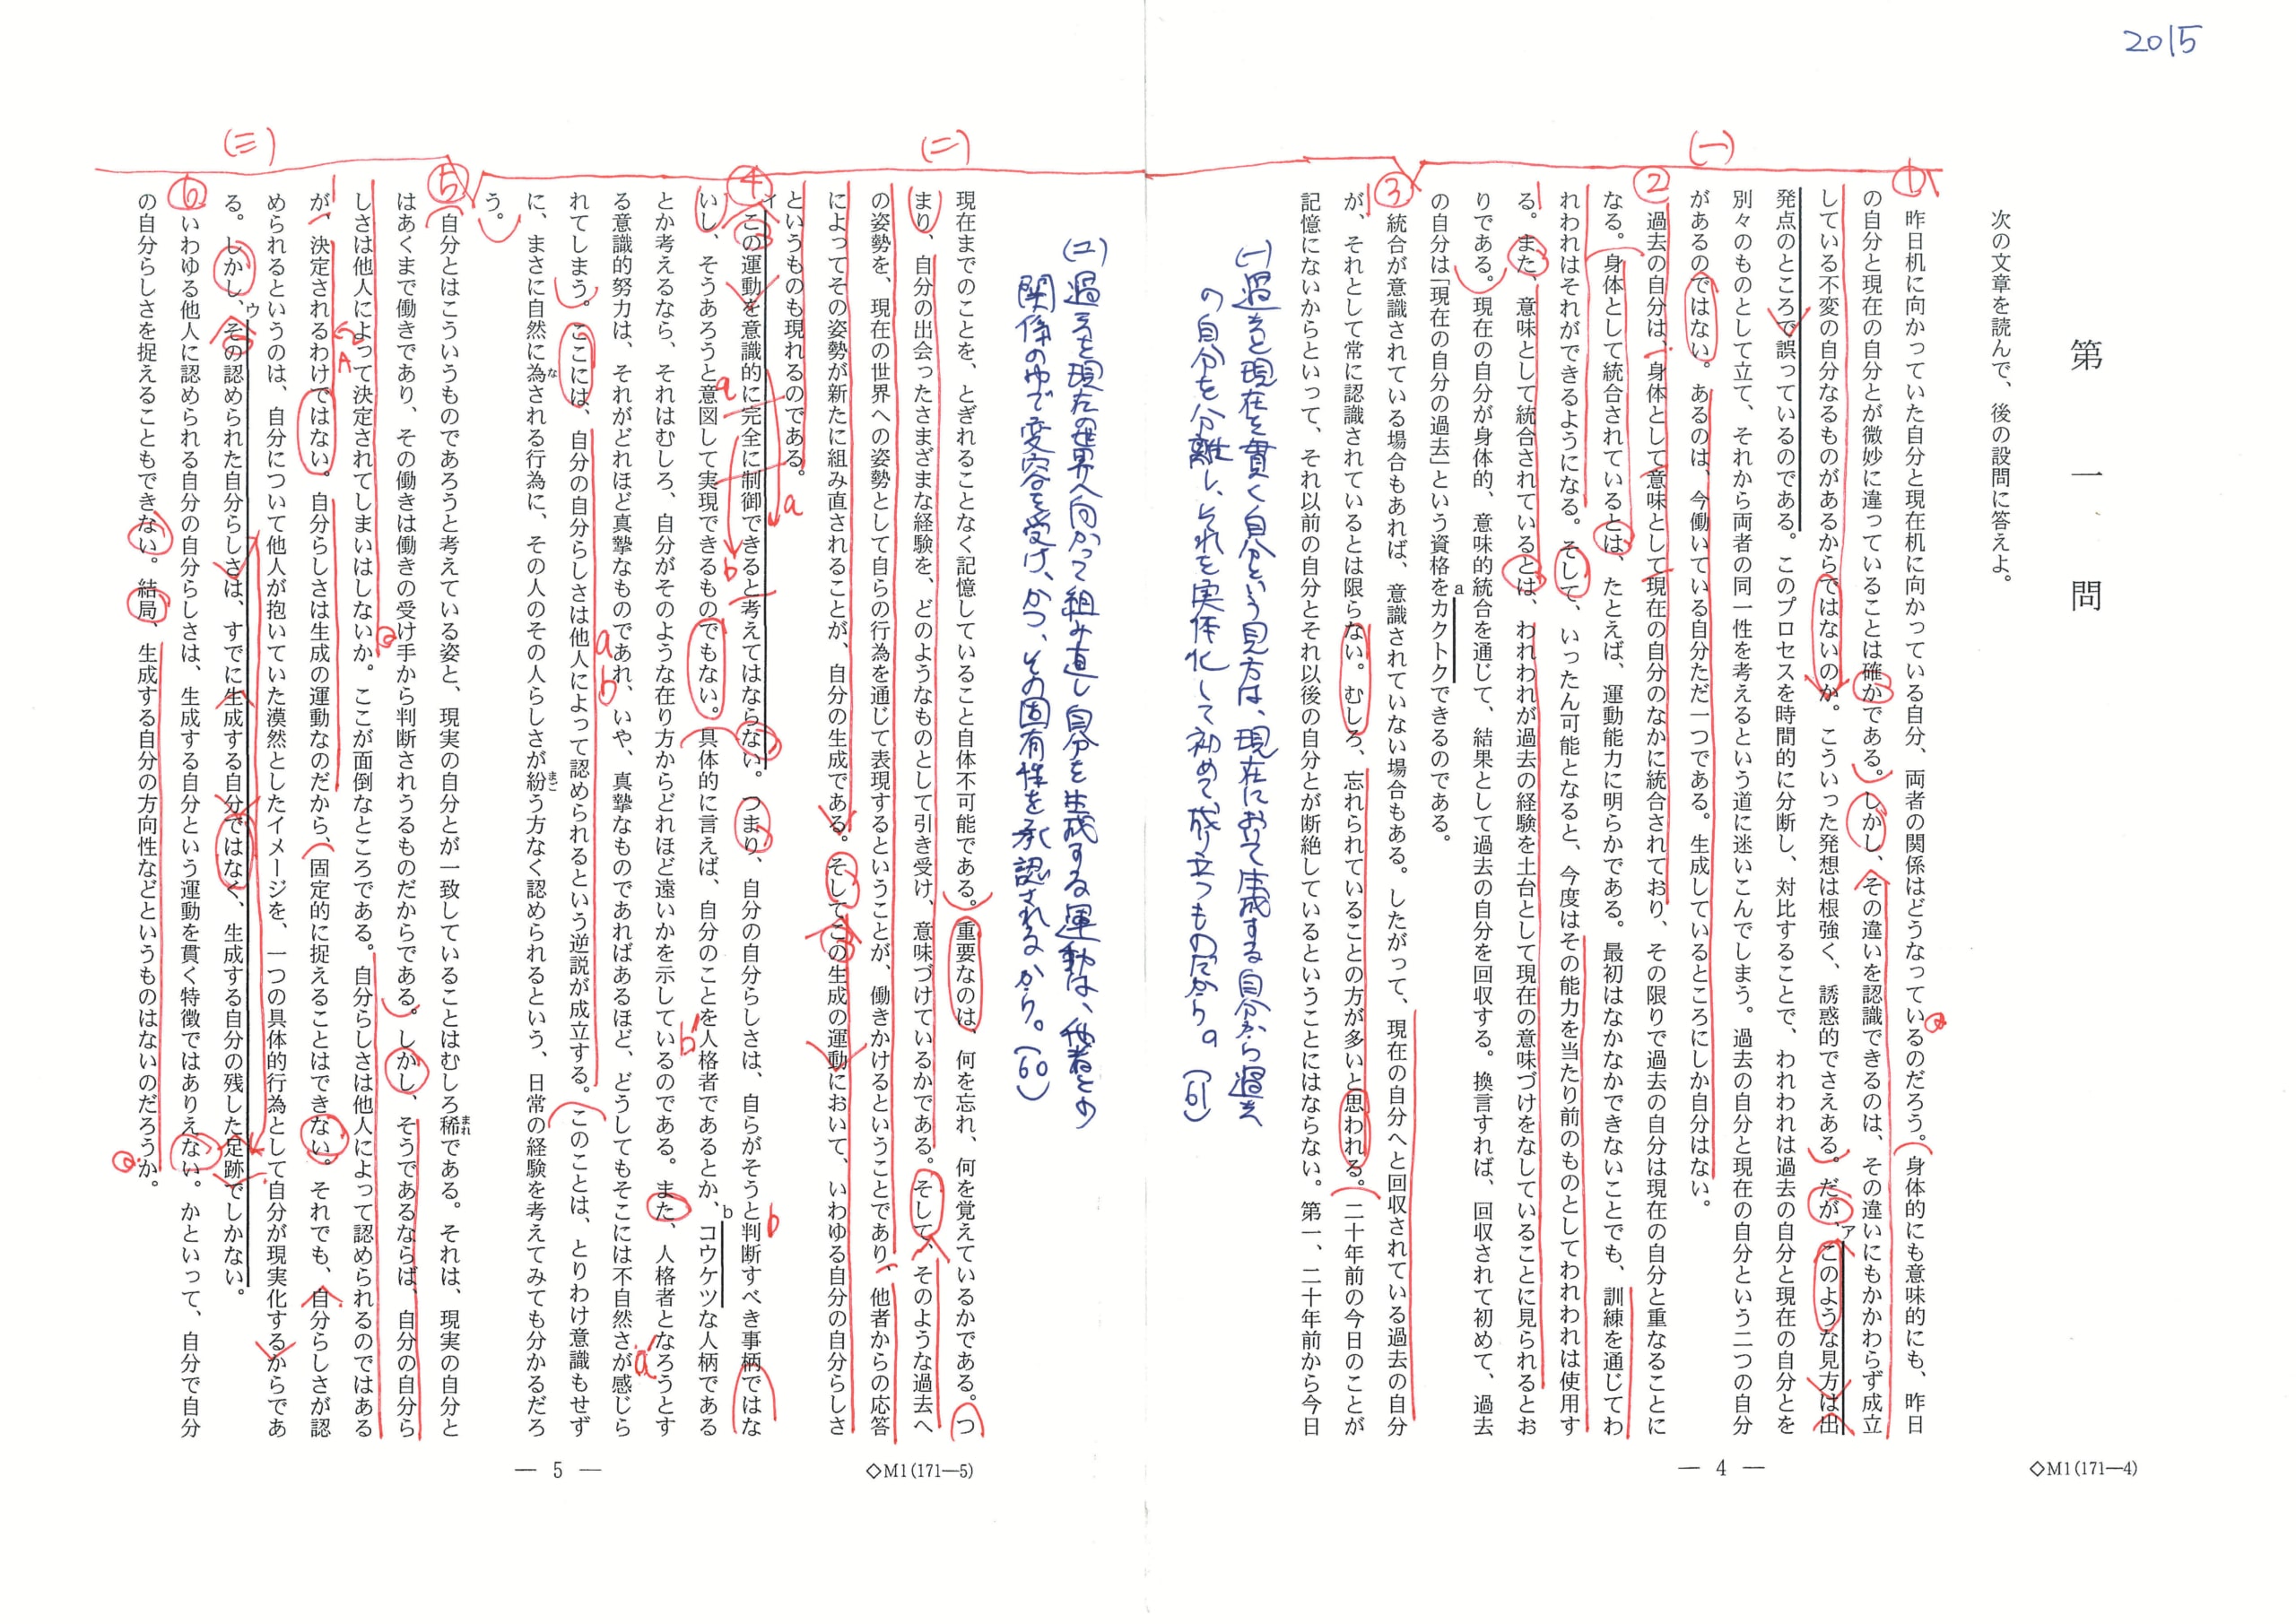 2015
第一問
次の文章を読んで、後の設問に答えよ。
(一)
①
昨日机に向かっていた自分と現在机に向かっている自分、両者の関係はどうなっているのだろう。身体的にも意味的にも、昨日
の自分と現在の自分とが微妙に違っていることは確かである。しかし、その違いを認識できるのは、その違いにもかかわらず成立
している不変の自分なるものがあるからではないのか。こういった発想は根強く、誘惑的でさえある。だが、アこのような見方は出
発点のところで誤っているのである。このプロセスを時間的に分断し、対比することで、われわれは過去の自分と現在の自分とを
別々のものとして立て、それから両者の同一性を考えるという道に迷いこんでしまう。過去の自分と現在の自分という二つの自分
があるのではない。あるのは、今働いている自分ただ一つである。生成しているところにしか自分はない。
②
過去の自分は、身体として意味として現在の自分のなかに統合されており、その限りで過去の自分は現在の自分と重なることに
なる。身体として統合されているとは、たとえば、運動能力に明らかである。最初はなかなかできないことでも、訓練を通じてわ
れわれはそれができるようになる。そして、いったん可能となると、今度はその能力を当たり前のものとしてわれわれは使用す
る。また、意味として統合されているとは、われわれが過去の経験を土台として現在の意味づけをなしていることに見られるとお
りである。現在の自分が身体的、意味的統合を通じて、結果として過去の自分を回収する。換言すれば、回収されて初めて、過去
の自分は「現在の自分の過去」という資格をaカクトクできるのである。
③
統合が意識されている場合もあれば、意識されていない場合もある。したがって、現在の自分へと回収されている過去の自分
が、それとして常に認識されているとは限らない。むしろ、忘れられていることの方が多いと思われる。二十年前の今日のことが
記憶にないからといって、それ以前の自分とそれ以後の自分とが断絶しているということにはならない。第一、二十年前から今日
(一)過去と現在を貫く自分という見方は、現在において生成する自分から過去
の自分を分離し、それを実体化して初めて成り立つものだから。(61)
― 4 ―
◇M1(171―4)
(二)過去を現在の世界へ向かって組み直し自分を生成する運動は、他者との
関係の中で変容を受け、かつ、その固有性を承認されるから。(60)
(二)
現在までのことを、とぎれることなく記憶していること自体不可能である。重要なのは、何を忘れ、何を覚えているかである。つ
まり、自分の出会ったさまざまな経験を、どのようなものとして引き受け、意味づけているかである。そして、そのような過去へ
の姿勢を、現在の世界への姿勢として自らの行為を通じて表現するということが、働きかけるということであり、他者からの応答
によってその姿勢が新たに組み直されることが、自分の生成である。そしてこの生成の運動において、いわゆる自分の自分らしさ
というものも現れるのである。
④
イこの運動を意識的に完全に制御できると考えてはならない。つまり、自分の自分らしさは、自らがそうと判断すべき事柄ではな
いし、そうあろうと意図して実現できるものでもない。具体的に言えば、自分のことを人格者であるとか、bコウケツな人柄である
とか考えるなら、それはむしろ、自分がそのような在り方からどれほど遠いかを示しているのである。また、人格者となろうとす
る意識的努力は、それがどれほど真摯なものであれ、いや、真摯なものであればあるほど、どうしてもそこには不自然さが感じら
れてしまう。ここには、自分の自分らしさは他人によって認められるという逆説が成立する。このことは、とりわけ意識もせず
に、まさに自然に為なされる行為に、その人のその人らしさが紛まごう方なく認められるという、日常の経験を考えてみても分かるだろ
う。
(三)
⑤
自分とはこういうものであろうと考えている姿と、現実の自分とが一致していることはむしろ稀まれである。それは、現実の自分と
はあくまで働きであり、その働きは働きの受け手から判断されうるものだからである。しかし、そうであるならば、自分の自分ら
しさは他人によって決定されてしまいはしないか。ここが面倒なところである。自分らしさは他人によって認められるのではある
が、決定されるわけではない。自分らしさは生成の運動なのだから、固定的に捉えることはできない。それでも、自分らしさが認
められるというのは、自分について他人が抱いていた漠然としたイメージを、一つの具体的行為として自分が現実化するからであ
る。しかし、ウその認められた自分らしさは、すでに生成する自分ではなく、生成する自分の残した足跡でしかない。
⑥
いわゆる他人に認められる自分の自分らしさは、生成する自分という運動を貫く特徴ではありえない。かといって、自分で自分
の自分らしさを捉えることもできない。結局、生成する自分の方向性などというものはないのだろうか。
― 5 ―
◇M1(171―5)